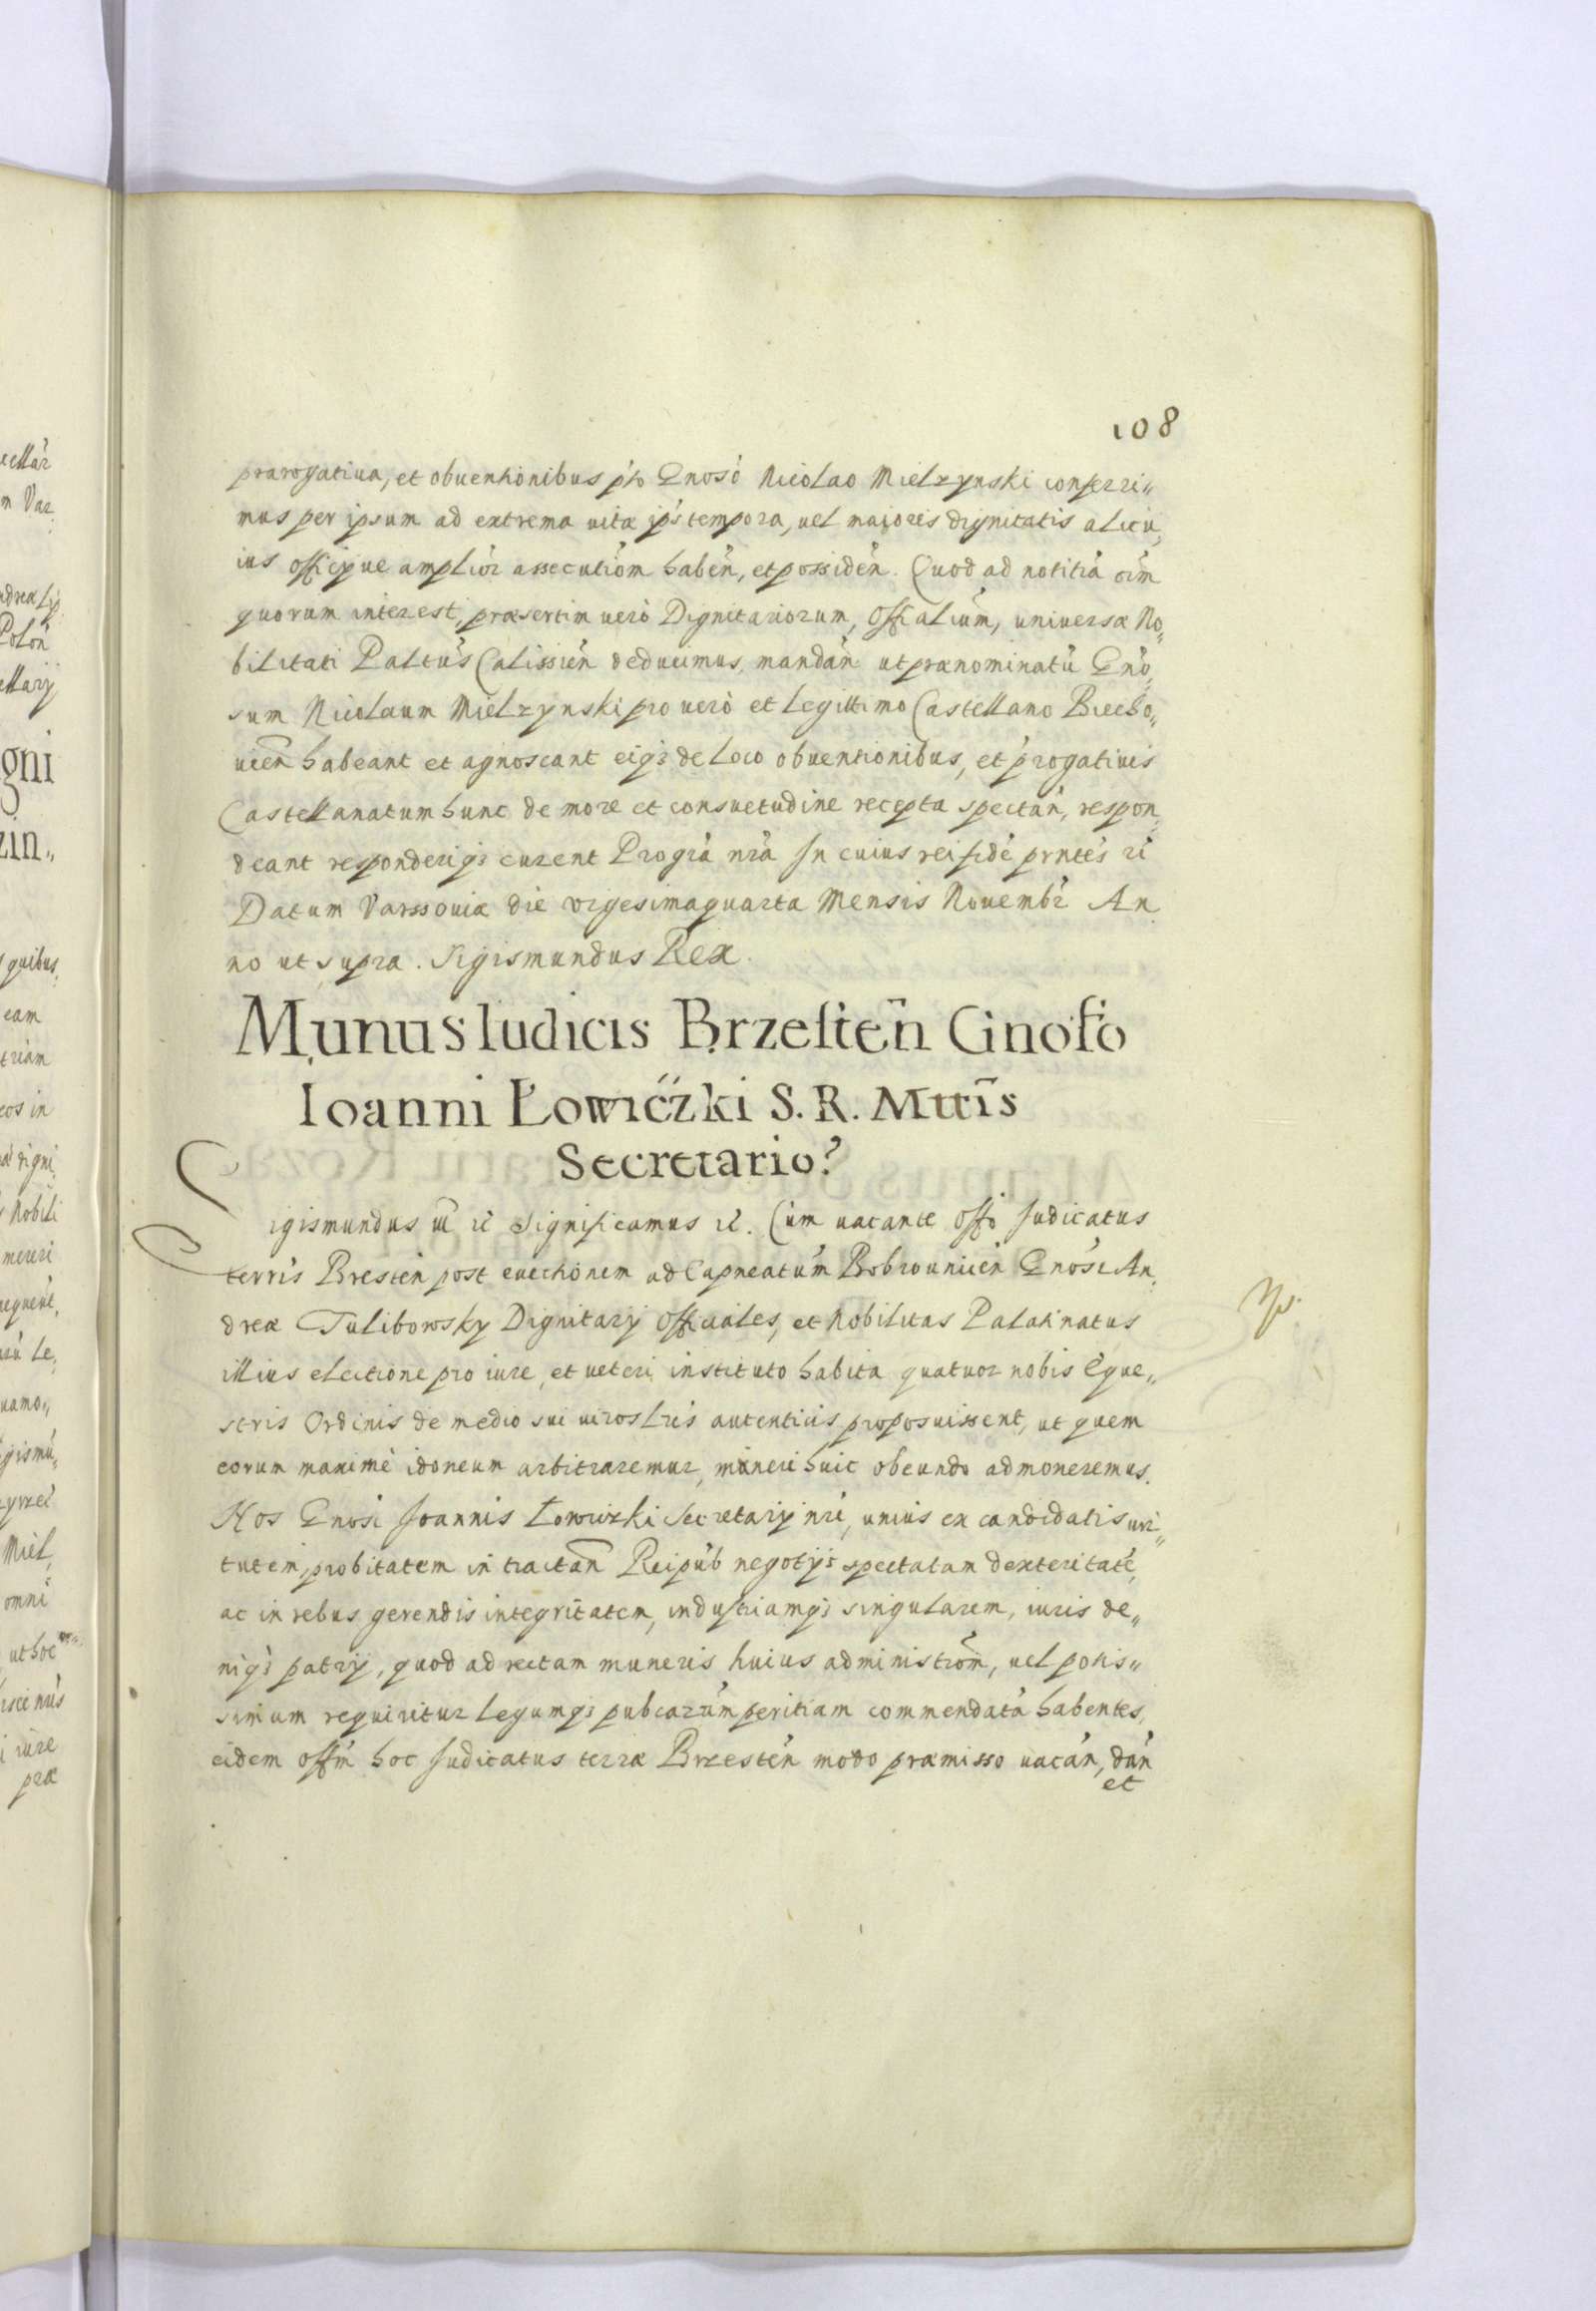 108
prærogatiua, et obuentionibus pto Gnoso Nicolao Mielzynski conferri„
mus per ipsum ad extrema uitæ ips tempora, uel maioris dignitatis alicu„
ius officijue amplior assecutiom haben, et possiden. Quod ad notitia oim
quorum interest, præsertim uero Dignitariorum, Offialium, universæ No„
bilitati Paltus Calissien deducimus, mandan ut prænominatu Gno„
sum Nicolaum Mielzynski pro uero et legittimo Castellano Biecho„
uien habeant et agnoscant eiq; de loco obuentionibus, et progatiuis
Castellanatum hunc de more et consuetudine recepta spectan, respon„
deant responderiq; curent Pro gra nra In cuius rei fide prntes rc
Datum Varssouiæ die vigesimaquarta Mensis Nouembr An„
no ut supra. Sigismundus Rex.
Munus Iudicis Brzesten Gnoso
Ioanni Łowiczki S. R. Mttis
Secretario
Sigismundus ut rc Significamus rc. Cum uacante offo Iudicatus
terris Bresten post euectionem ad Capneatum Bobrownicen Gnosi An„
dreæ Tulibowsky Dignitarij Officiales, et Nobilitas Palatinatus
illius electione pro iure, et ueteri instituto habita quatuor nobis Eque„
stris Ordinis de medio sui uiros lris autenticis proposuissent, ut quem
eorum maxime idoneum arbitraremur, muneri huic obeundo admoneremus.
Nos Gnosi Joannis Łowiczki Secretarij nri, unius ex candidatis uir„
tutem, probitatem in tractan Reipub negotijs spectatam dexteritate,
ac in rebus gerendis integritatem, industriamq; singularem, iuris de„
niq; patrij, quod ad rectam muneris huius administrom, uel potis„
simum requiritur legumq; pubcarum peritiam commendata habentes,
eidem offm hoc Iudicatus terræ Brzesten modo præmisso uacan, dan
et